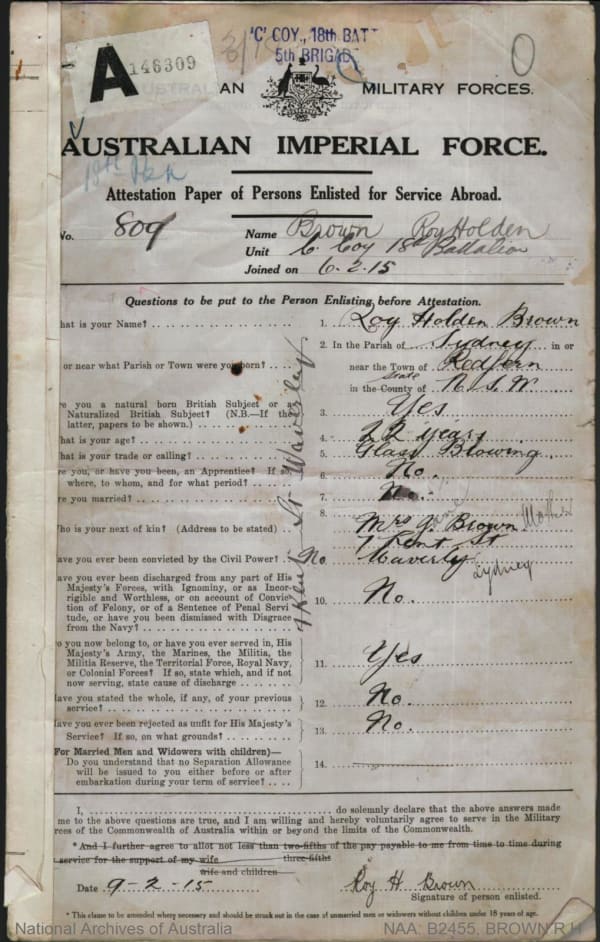 'C' COY., 18th BATT
5th BRIGADE
A 146309
AUSTRALIAN MILITARY FORCES.
AUSTRALIAN IMPERIAL FORCE.
18th Btn
Attestation Paper of Persons Enlisted for Service Abroad.
No. 809 Name Brown Roy Holden
Unit C. Coy 18th Battalion
Joined on 6-2-15
Questions to be put to the Person Enlisting before Attestation.
hat is your Name? 1. Roy Holden Brown
2. In the Parish of Sydney in or
or near what Parish or Town were you born? near the Town of Redfern
in the County of State N S W
re you a natural born British Subject or a
Naturalized British Subject? (N.B.—If the
latter, papers to be shown.) 3. Yes
hat is your age? 4. 22 years
hat is your trade or calling? 5. Glass Blowing
re you, or have you been, an Apprentice? If so,
where, to whom, and for what period? 6. No.
re you married? 7. No.
ho is your next of kin? (Address to be stated) 8. Mrs J. Brown Mother
Jane
7 Kent St
Waverly Sydney
7 Kent St Waverley
ave you ever been convicted by the Civil Power? No
ave you ever been discharged from any part of His
Majesty's Forces, with Ignominy, or as Incor-
rigible and Worthless, or on account of Convic-
tion of Felony, or of a Sentence of Penal Servi
tude, or have you been dismissed with Disgrace
from the Navy? 10. No.
o you now belong to, or have you ever served in, His
Majesty's Army, the Marines, the Militia, the
Militia Reserve, the Territorial Force, Royal Navy,
or Colonial Forces? If so, state which, and if not
now serving, state cause of discharge 11. Yes
ave you stated the whole, if any, of your previous
service? 12. No.
ave you ever been rejected as unfit for His Majesty's
Service? If so, on what grounds? 13. No.
(For Married Men and Widowers with children)—
Do you understand that no Separation Allowance
will be issued to you either before or after
embarkation during your term of service? 14.
I, do solemnly declare that the above answers made
me to the above questions are true, and I am willing and hereby voluntarily agree to serve in the Military
rces of the Commonwealth of Australia within or beyond the limits of the Commonwealth.
*And I further agree to allot not less than two-fifths of the pay payable to me from time to time during
three-fifths
service for the support of my wife
wife and children
Date 9-2-15 Roy H Brown
Signature of person enlisted.
* This clause to be amended where necessary and should be struck out in the case of unmarried men or widowers without children under 18 years of age.
National Archives of Australia NAA: B2455, BROWN R H